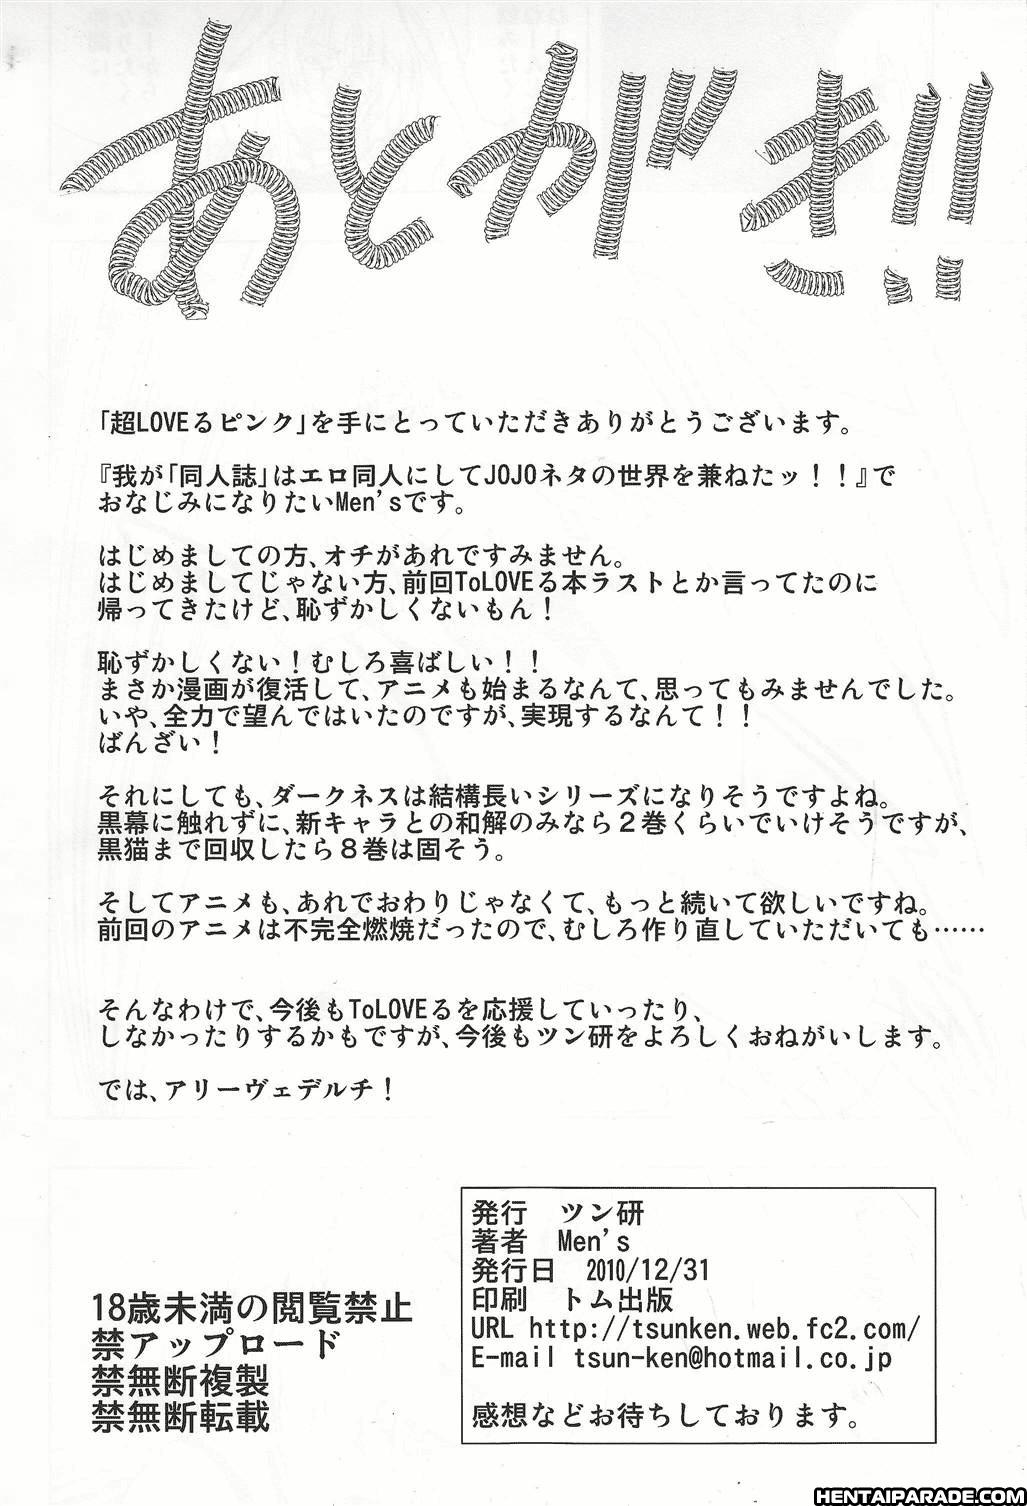 あとがき!!
「超LOVEるピンク」を手にとっていただきありがとうございます。
『我が「同人誌」はエロ同人にしてJOJOネタの世界を兼ねたッ！！』で
おなじみになりたいMen'sです。
はじめましての方、オチがあれですみません。
はじめましてじゃない方、前回ToLOVEる本ラストとか言ってたのに
帰ってきたけど、恥ずかしくないもん！
恥ずかしくない！むしろ喜ばしい！！
まさか漫画が復活して、アニメも始まるなんて、思ってもみませんでした。
いや、全力で望んではいたのですが、実現するなんて！！
ばんざい！
それにしても、ダークネスは結構長いシリーズになりそうですよね。
黒幕に触れずに、新キャラとの和解のみなら２巻くらいでいけそうですが、
黒猫まで回収したら８巻は固そう。
そしてアニメも、あれでおわりじゃなくて、もっと続いて欲しいですね。
前回のアニメは不完全燃焼だったので、むしろ作り直していただいても……
そんなわけで、今後もToLOVEるを応援していったり、
しなかったりするかもですが、今後もツン研をよろしくおねがいします。
では、アリーヴェデルチ！
18歳未満の閲覧禁止
禁アップロード
禁無断複製
禁無断転載
発行　ツン研
著者　Men's
発行日　2010/12/31
印刷　トム出版
URL http://tsunken.web.fc2.com/
E-mail tsun-ken@hotmail.co.jp
感想などお待ちしております。
HENTAIPARADE.COM